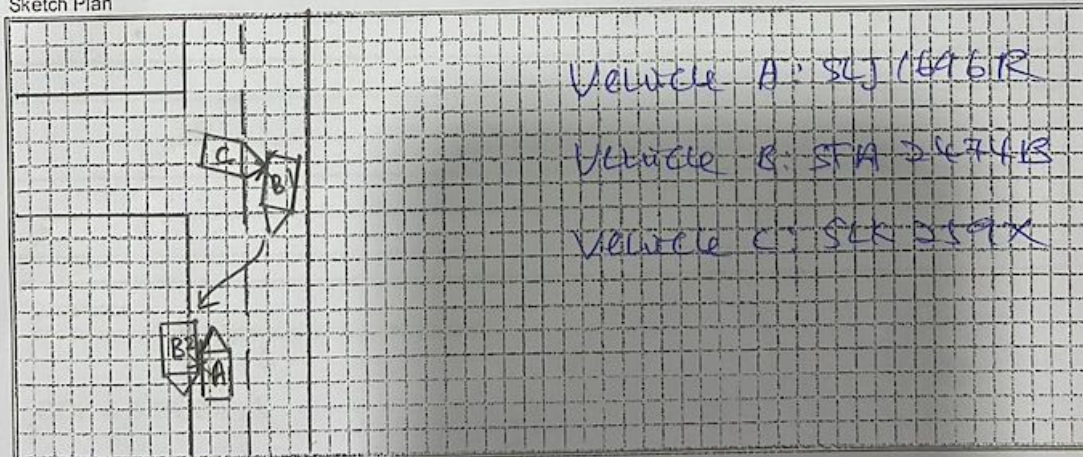 Sketch Plan
Vehicle A: SLJ 1646R
Vehicle B: SFA 2474B
Vehicle C: SLK 259X
C
B1
B2
A